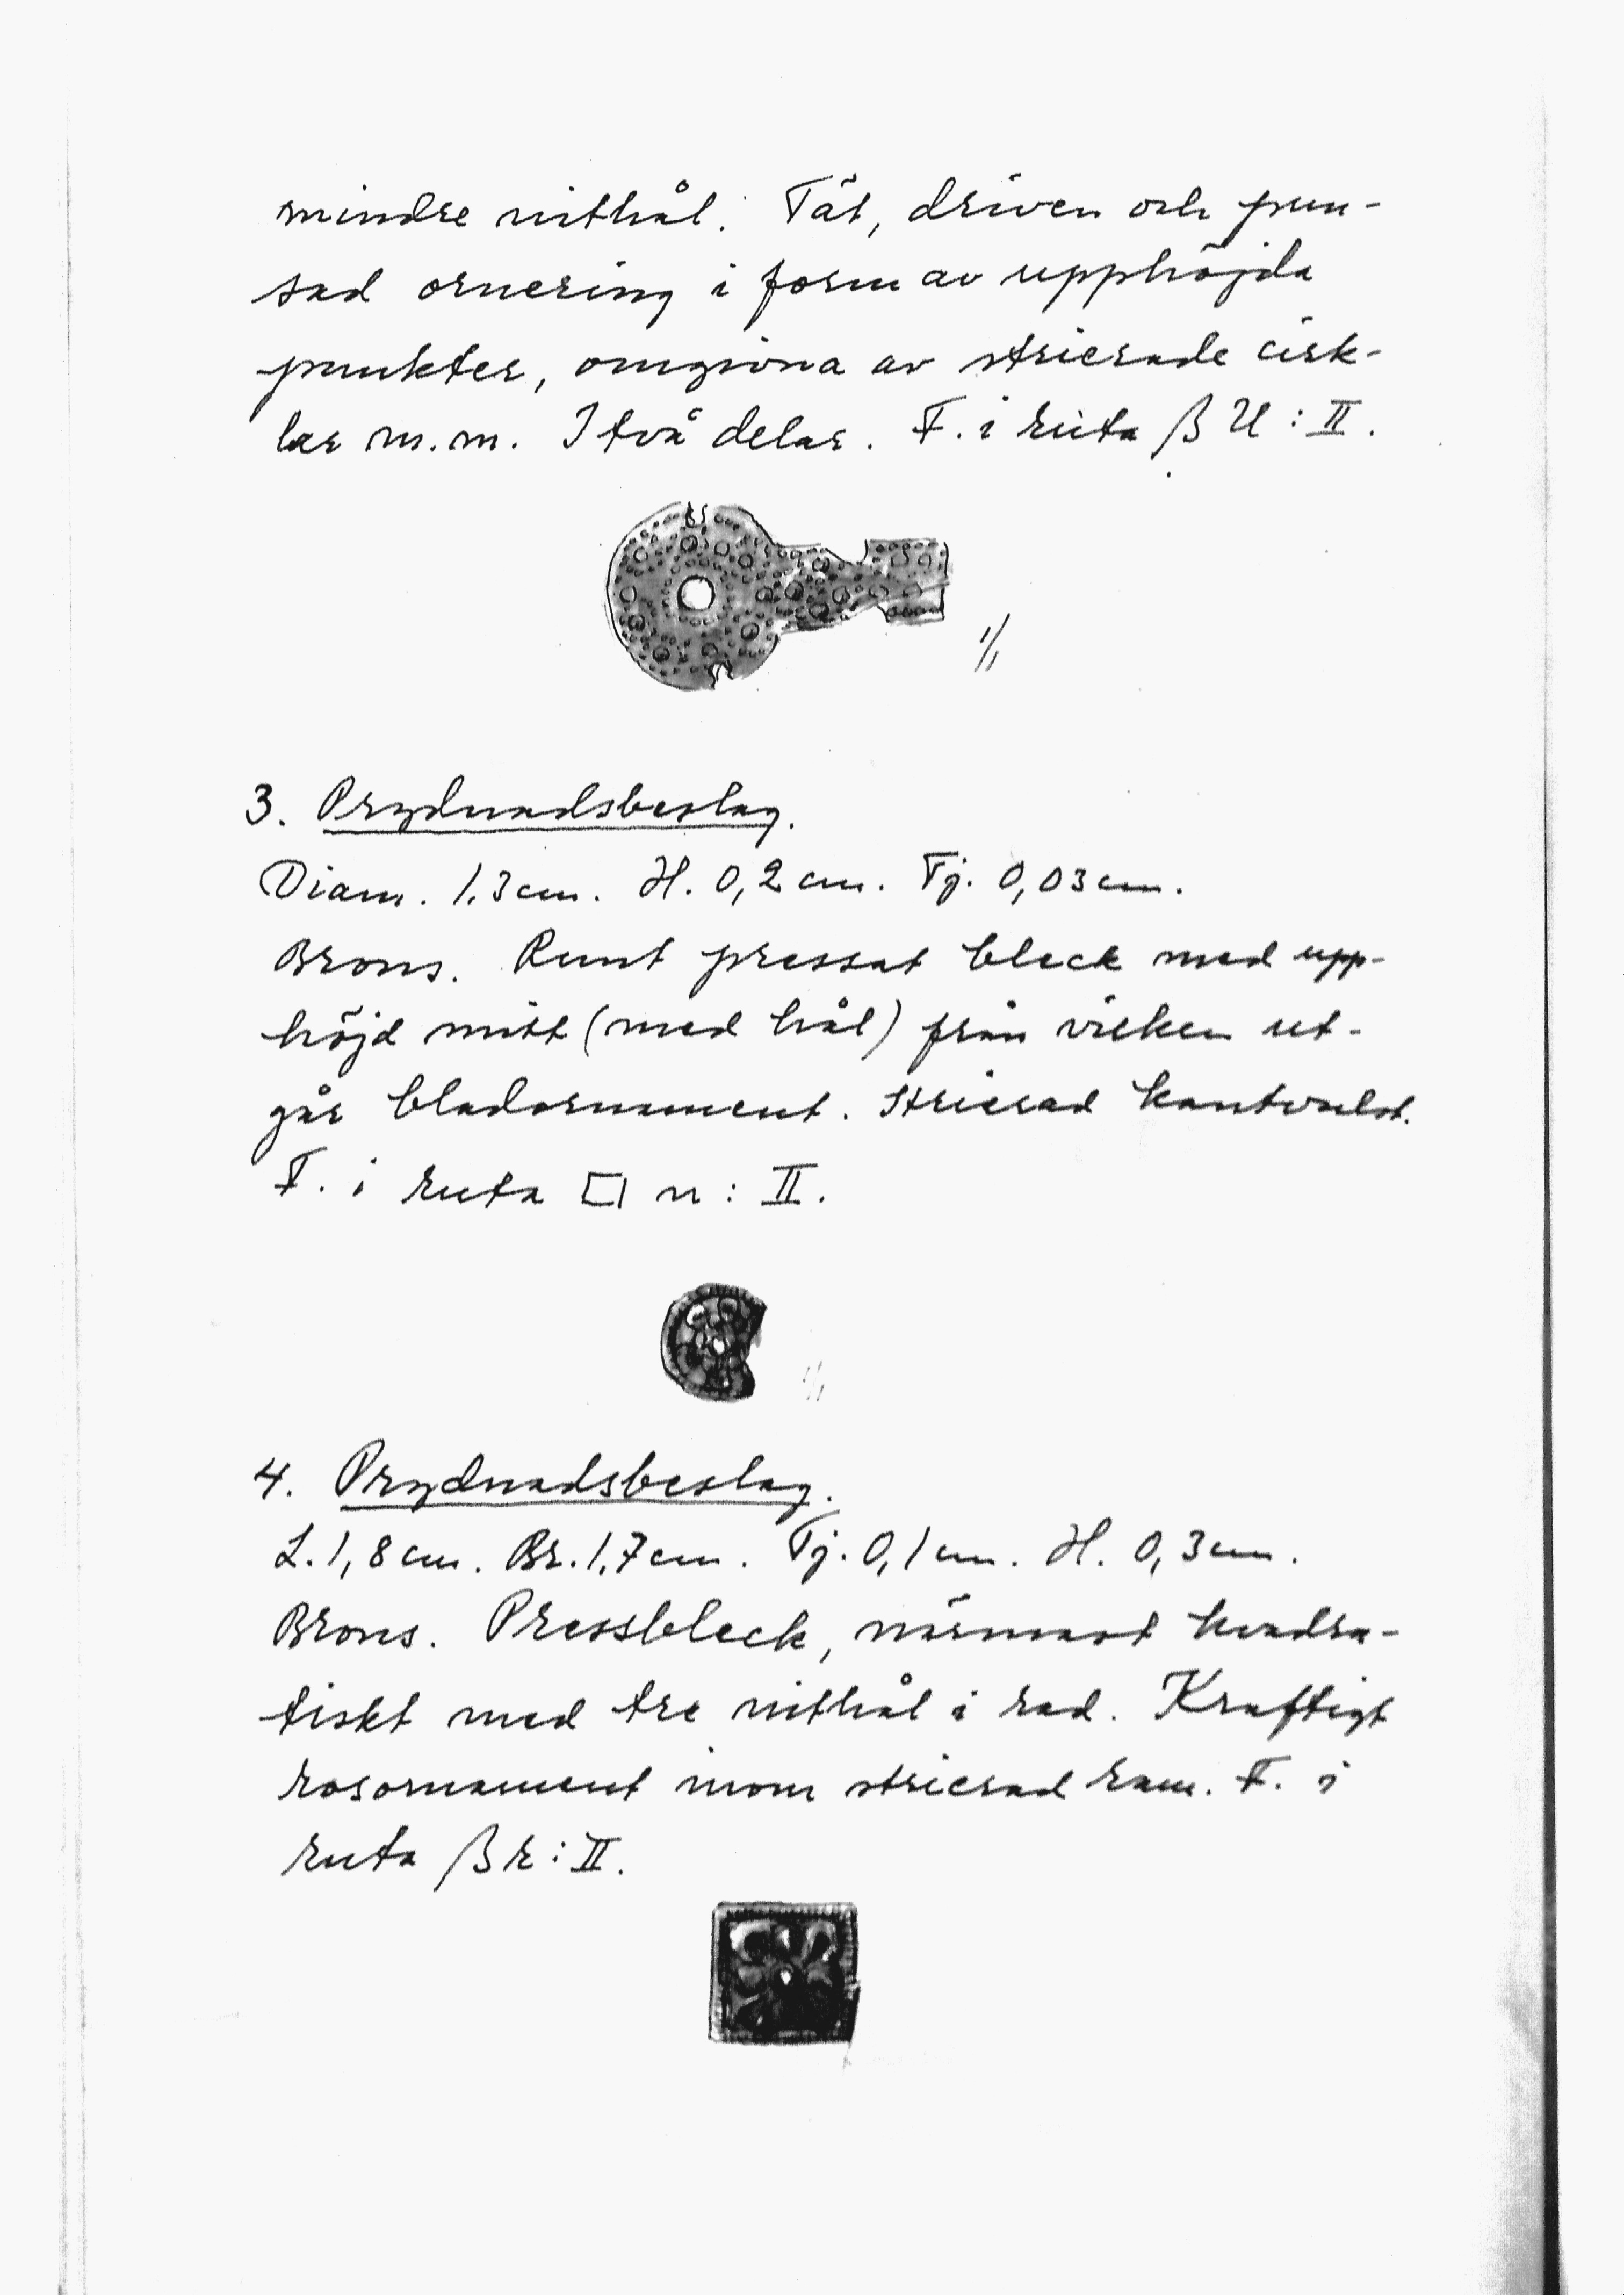 mindre nithål. Tät, driven och pun-
sad ornering i form av upphöjda
punkter, omgivna av strierade cirk-
lar m.m. I två delar. F. i ruta β U : II.
1/1
3. Prydnadsbeslag.
Diam. 1,3 cm. H. 0,2 cm. Tj. 0,03 cm.
Brons. Runt pressat bleck med upp-
höjd mitt (med hål) från vilken ut-
går bladornament. Strierad kantvulst.
F. i ruta □ n : II.
1/1
4. Prydnadsbeslag.
L. 1,8 cm. Br. 1,7 cm. Tj. 0,1 cm. H. 0,3 cm.
Brons. Pressbleck, närmast kvadra-
tiskt med tre nithål i rad. Kraftigt
rosornament inom strierad ram. F. i
ruta β R : II.